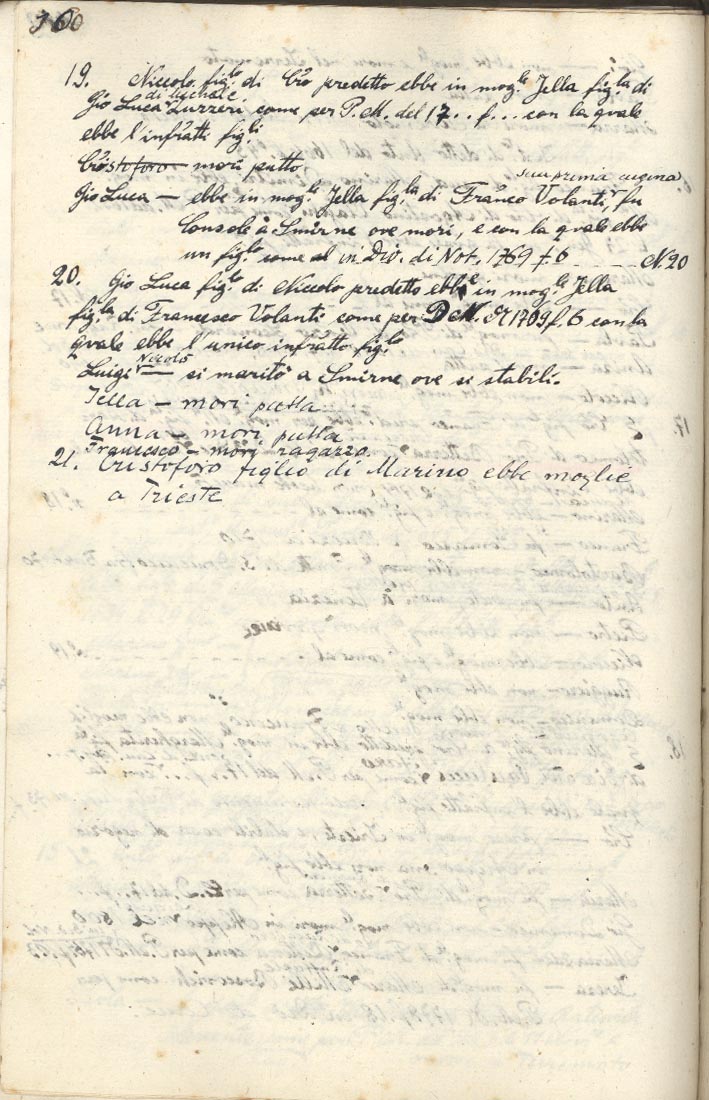 160
19. Niccolo fig.lo di Cro predetto ebbe in mog.le Jella fig.la di
di Michele
Gio Luca Luzzeri come per P. M. del 17.. f... con la quale
ebbe l'infratti figli
Cristoforo — morì putto
sua prima cugina
Gio Luca — ebbe in mog.le Jella fig.la di Franco Volanti, fu
Console à Smirne ove morì, e con la quale ebbe
un fig.lo come al in Div. di Not. 1769 f. 6 ...... N. 20
20. Gio Luca fig.lo di Niccolo predetto ebbe in mog.le Jella
fig.la di Francesco Volanti come per P. M. 1709 f. 6 con la
quale ebbe l'unico infratto fig.lo
Nicolò
Luigi — si maritò a Smirne ove si stabilì.
Jella — morì putta
Anna — morì putta
Francesco — morì ragazzo.
21. Cristoforo figlio di Marino ebbe moglie
a Trieste